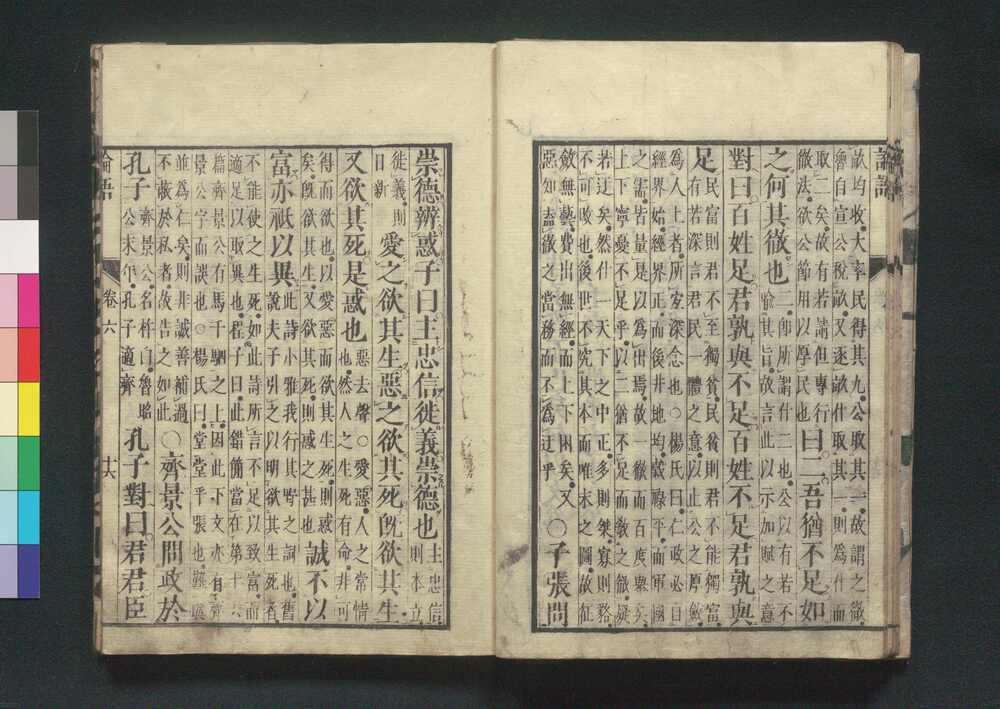 論語
畝均收。大率民得其九。公取其一。故謂之徹。
魯自宣公稅畝。又逐畝什取其一。則爲什而
取二矣。故有若請但專行
徹法。欲公節用以厚民也
曰。二吾猶不足。如
之何其徹也
二即所謂什二也。公以有若不
喩其旨。故言此以示加賦之意
對曰。百姓足。君孰與不足。百姓不足。君孰與
足
民富則君不至獨貧。民貧則君不能獨富。
有若深言君民一體之意。以止公之厚斂。
爲人上者。所宜深念也。○楊氏曰。仁政必自
經界始。經界正。而後井地均。穀祿平。而軍國
之需。皆量是以爲出焉。故一徹而百度舉矣。
上下寧憂不足乎。以二猶不足而敎之徹。疑
若迂矣。然什一天下之中正。多則桀。寡則貉。
不可改也。後世不究其本而唯末之圖。故征
斂無藝。費出無經。而上下困矣。又
惡知盍徹之當務而不爲迂乎
○子張問
崇德辨惑。子曰。主忠信。徙義。崇德也
主忠信
則本立
徙義。則
日新
愛之欲其生。惡之欲其死。旣欲其生
又欲其死。是惑也
惡去聲。○愛惡。人之常情
也。然人之生死有命。非可
得而欲也。以愛惡而欲其生死。則惑
矣。旣欲其生。又欲其死。則惑之甚也
誠不以
富。亦祗以異
此詩小雅我行其野之詞也。舊
說夫子引之。以明欲其生死者
不能使之生死。如此詩所言不足以致富。而
適足以取異也。程子曰。此錯簡。當在第十六
篇齊景公有馬千駟之上。因此下文亦有齊
景公字而誤也。○楊氏曰。堂堂乎張也。難與
並爲仁矣。則非誠善補過
不蔽於私者。故告之如此
○齊景公問政於
孔子
齊景公。名杵臼。魯昭
公末年。孔子適齊
孔子對曰。君君。臣
論語 卷六 十六